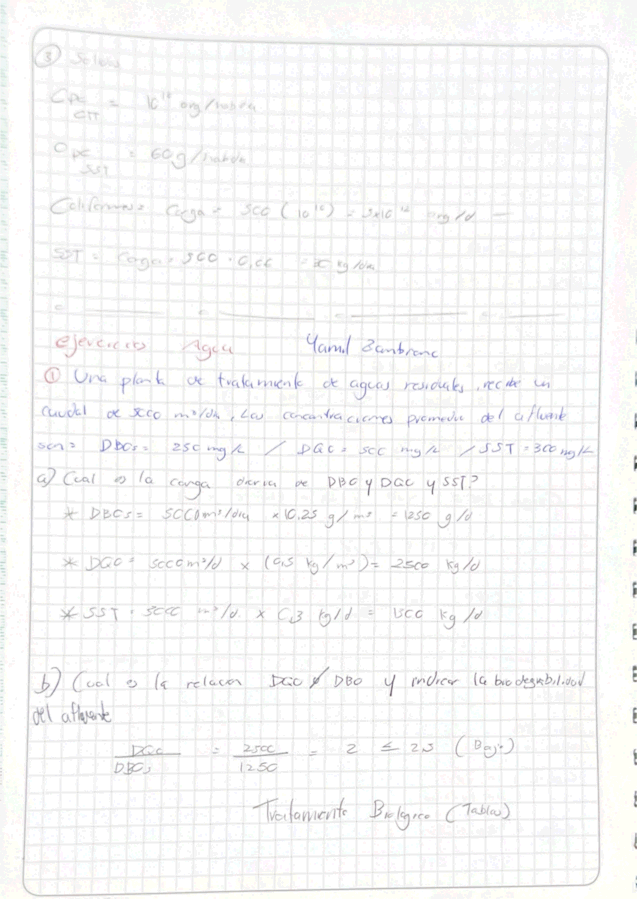 ③ Soluc
CPC CTT = 10¹⁰ org/habda
CPC SST = 60g/habda
Coliformes Carga = 500 (10¹⁰) = 5x10¹² org/d
SST = Carga = 500 · 0,06 = 30 kg/dia
Ejercicios Agua Yamil Zambrano
① Una planta de tratamiento de aguas residuales, recibe un
caudal de 5000 m³/dia, Las concentraciones promedio del afluente
son: DBO5 = 250 mg/L / DQO = 500 mg/L / SST = 300 mg/L
a) Cual es la carga diaria de DBO y DQO y SST?
* DBO5 = 5000m³/dia x 10,25 g/m³ = 1250 g/d
* DQO = 5000m³/d x (0,5 kg/m³) = 2500 kg/d
* SST = 5000 m³/d x 0,3 kg/d = 1500 kg/d
b) Cual es la relacion DQO y DBO y indicar la biodegrabilidad
del afluente
DQO / DBO5 = 2500 / 1250 = 2 ≤ 2,5 (Bajo)
Tratamiento Biologico (Tablas)